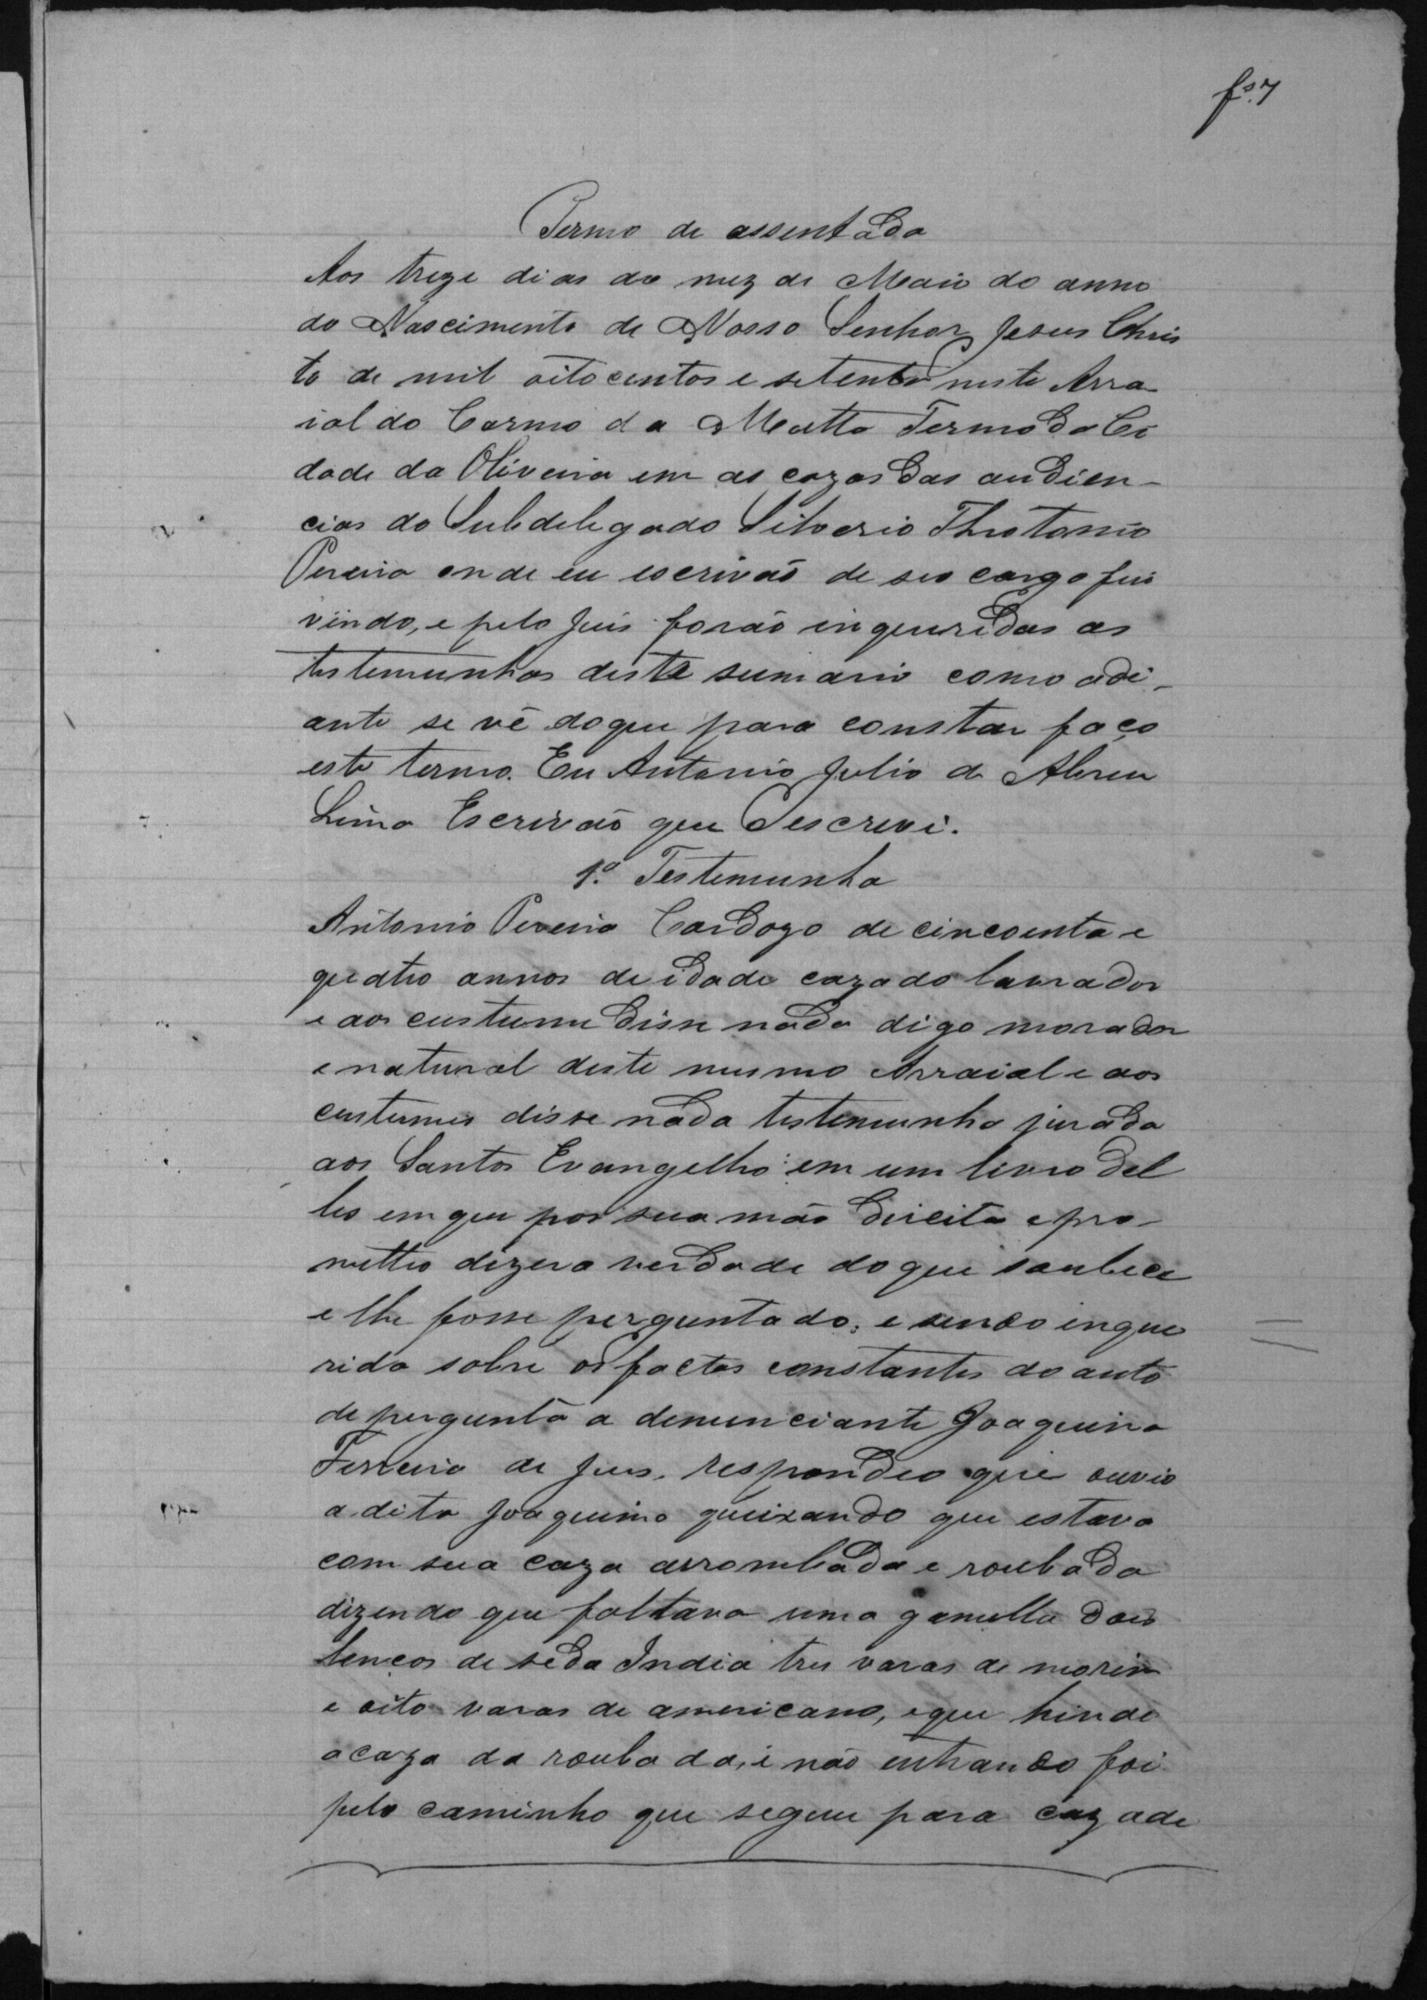 fs. 7
Termo de assentada
Aos treze dias do mez de Maio do anno
do Nascimento de Nosso Senhor Jesus Chris
to de mil oito centos e setenta neste Arra
ial do Carmo da Matta Termo da Ci
dade da Oliveira em as cazas das audien-
cias do Subdelegado Silverio Theotonio
Pereira onde eu escrivão de seo cargo fui
vindo, e pelo Juis forão inqueridas as
testemunhas deste sumario como adi-
ante se vê do que para constar faço
este termo. Eu Antonio Julio de Abreu
Lima Escrivão que Sescrevi.
1ª Testemunha
Antonio Pereira Cardozo de cincoenta e
quatro annos de idade cazado lavrador
e aos custume disse nada digo morador
e natural deste mesmo Arraial e aos
custumes disse nada testemunha jurada
aos Santos Evangelho em um livro del
les em que pos sua mão direita e pro-
metteo dizer a verdade do que soubece
e lhe fosse perguntado; e sendo inque
rido sobre os factos constantes do auto
de pergunta a denunciante Joaquina
Ferreira de Jesus. respondeo que ouvio
a dita Joaquina queixando que estava
com sua caza arrombada e roubada
dizendo que faltava uma gamella dois
lencos de seda India tres varas de morim
e oito varas de americano, e que hindo
a caza da roubada, i não entrando foi
pelo caminho que segue para caza de